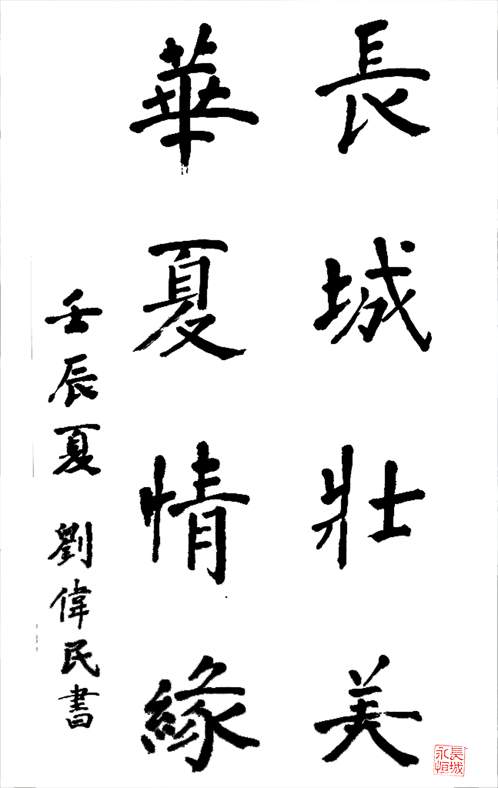 長城壯美
華夏情緣
壬辰夏 劉偉民書
長城
永恒